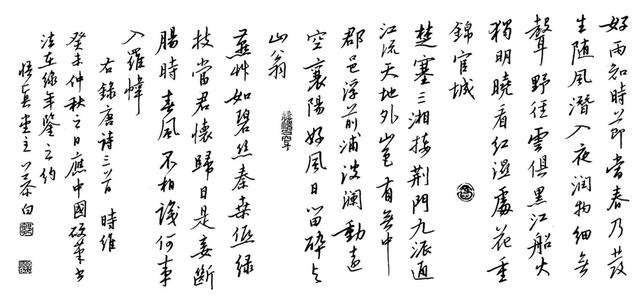 好雨知時節當春乃發
生随風潛入夜润物細無
聲野径雲俱黑江船火
獨明曉看红濕處花重
錦官城
楚塞三湘接荆門九派通
江流天地外山色有無中
郡邑浮前浦波瀾動遠
空襄陽好風日留醉与
山翁
燕艸如碧丝秦桑低绿
枝當君懷歸日是妾斷
腸時春風不相識何事
入羅幃
右録唐诗三首 時維
癸未仲秋之日應中國硬筆书
法在線年鉴之约
堂主